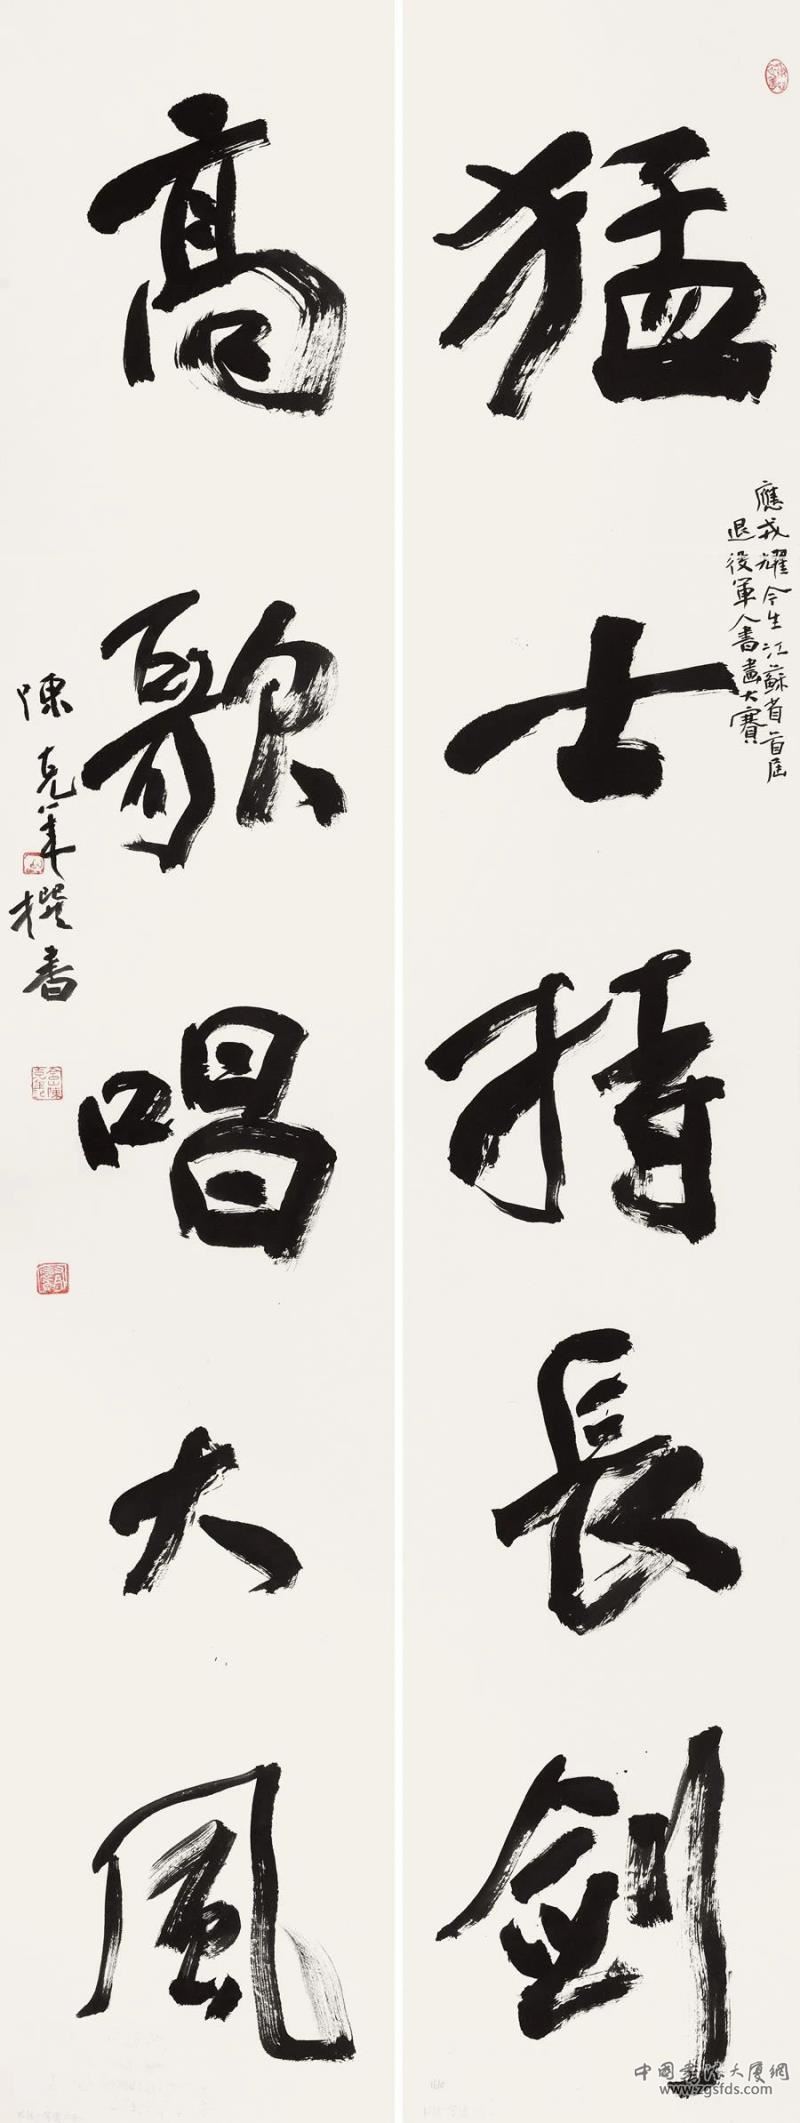 猛士持長劍
應戎耀今生江蘇省首屆
退役軍人書畫大賽
高歌唱大風
陳克年撰書
中国书法大厦網
www.zgsfds.com